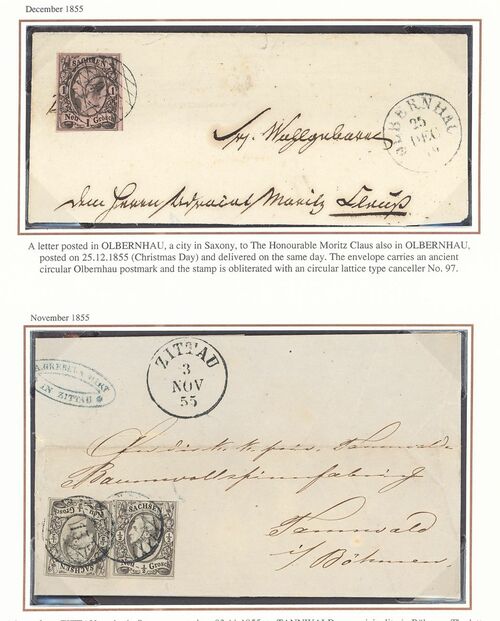 December 1855
SACHSEN
1 1
Neu 1 Grosch
OLBERNHAU
25
DEC
Sr. Wohlgeboren
dem Herrn Moritz Claus
A letter posted in OLBERNHAU, a city in Saxony, to The Honourable Moritz Claus also in OLBERNHAU,
posted on 25.12.1855 (Christmas Day) and delivered on the same day. The envelope carries an ancient
circular Olbernhau postmark and the stamp is obliterated with an circular lattice type canceller No. 97.
November 1855
ZITTAU
3
NOV
55
IN ZITTAU
An die k. k. priv. Tannwalder
Baumwollspinnfabrik
Tannwald
i/ Böhmen
SACHSEN
½ ½
Neu ½ Grosch
SACHSEN
½ ½
Neu ½ Grosch